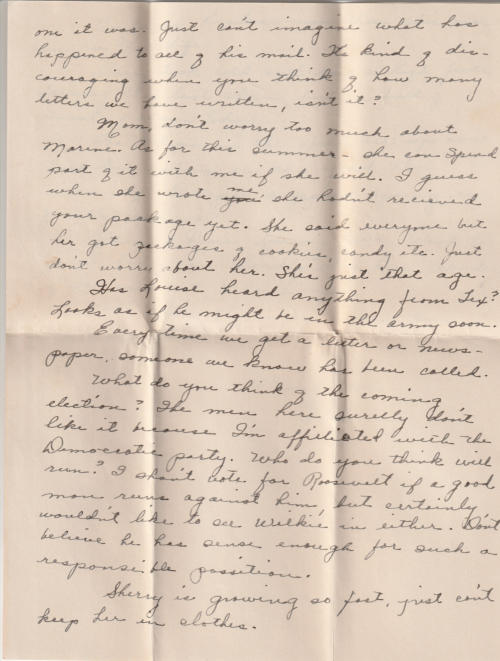 one it was. Just can't imagine what has
happened to all of his mail. It's kind of dis-
couraging when you think of how many
letters we have written, isn't it?
Mom, don't worry too much about
Maxine. As for this summer - she can spend
part of it with me if she will. I guess
when she wrote me she hadn't recieved
your package yet. She said everyone but
her got packages of cookies, candy etc. Just
don't worry about her. She's just that age.
Has Louise heard anything from Tex?
Looks as if he might be in the army soon.
Every time we get a letter or news-
paper, someone we know has been called.
What do you think of the coming
election? The men here surelly don't
like it because I'm affiliated with the
Democratic party. Who do you think will
run? I shan't vote for Roosevelt if a good
man runs against him, but certainly
wouldn't like to see Wilkie in either. Don't
believe he has sense enough for such a
responsible position.
Sherry is growing so fast, just can't
keep her in clothes.